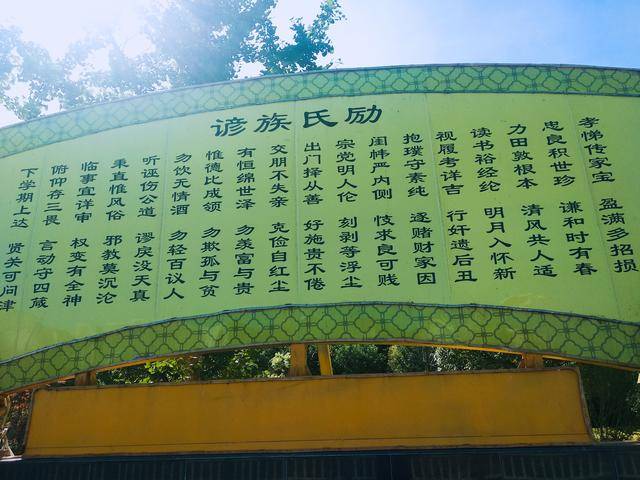 励氏族谚
孝悌传家宝 盈满多招损
忠良积世珍 谦和时有春
力田敦根本 清风共人适
读书裕经纶 明月入怀新
视履考详吉 行奸遗后丑
抱璞守素纯 逐赌财家因
闺帏严内侧 忮求良可贱
宗党明人伦 刻剥等浮尘
出门择从善 好施贵不倦
交朋不失亲 克俭自红尘
有恒绵世泽 勿羡富与贵
惟德比成领 勿欺孤与贫
勿饮无情酒 勿轻百议人
听诬伤公道 谬戾没天真
秉直惟风俗 邪教莫沉沦
临事宜详审 权变有全神
俯仰存三畏 言动守四箴
下学期上达 贤关可问津